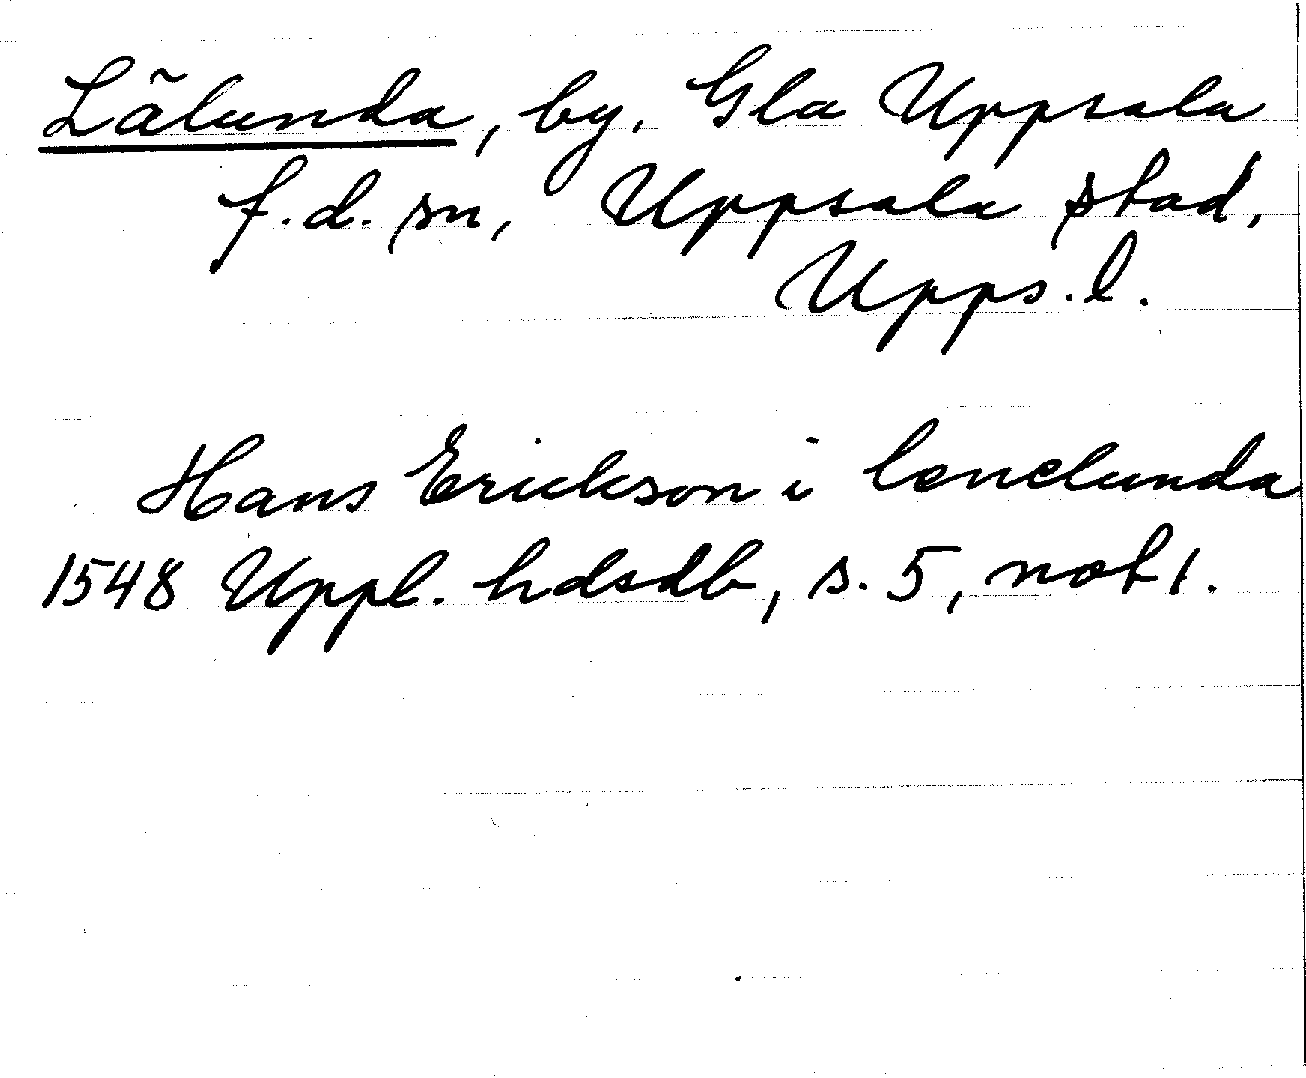 Lälunda, by. Gla Uppsala
f.d. sn, Uppsala stad,
Upps.l.
Hans Erickson i lenelunda
1548 Uppl. hdsdb, s. 5, not 1.